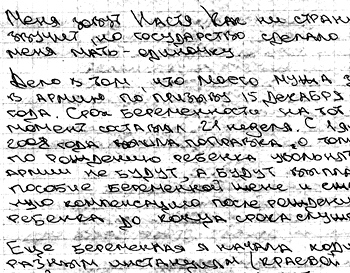 Меня зовут Настя. Как ни стран
звучит, но государство сделало
меня мать-одиночку.
Дело в том, что моего мужа з
в армию по призыву 15 декабря
года. Срок беременности на тот
момент составлял 21 неделя. С 1 я
2008 года вышла поправка, о том
по рождению ребенка увольнят
армии не будут, а будут выпла
пособие беременной жене и
ную компенсацию после рождения
ребенка до конца срока служ
Еще беременная я начала ходи
разным инстанциям (краевой